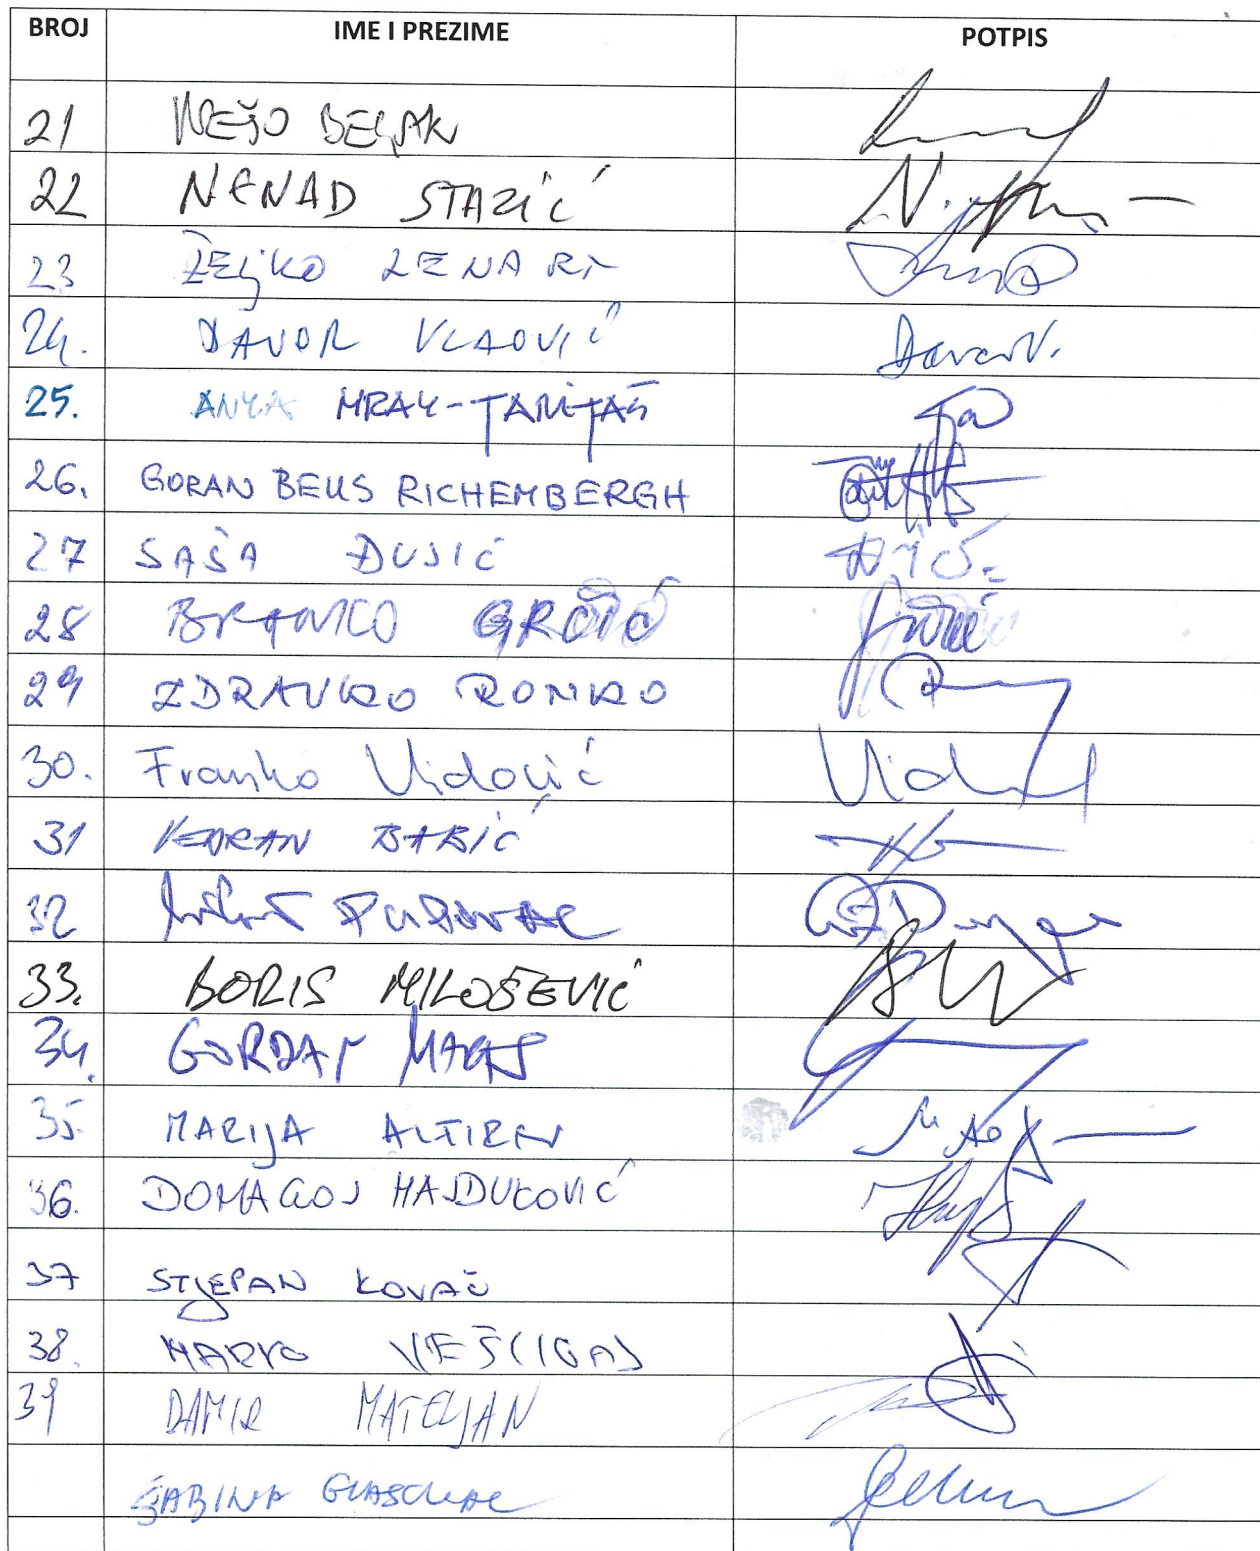 BROJ IME I PREZIME POTPIS
21 KREŠO BELJAK
22 NENAD STAZIĆ N.
23 ŽELJKO LENART
24. DAVOR VLAOVIĆ Davor V.
25. ANKA MRAK-TARITAŠ
26. GORAN BEUS RICHEMBERGH
27 SAŠA ĐUJIĆ
28 BRANKO GRČIĆ
29 ZDRAVKO RONKO
30. Franko Vidović Vid
31 VEDRAN BABIĆ
32 Milorad PUPOVAC
33. BORIS MILOŠEVIĆ
34. GORDAN MARAS
35. MARIJA ALTIREV
36. DOMAGOJ HAJDUKOVIĆ
37 STJEPAN KOVAČ
38. MARKO VEŠLIGAJ
39 DAMIR MATELJAN
SABINA GLASOVAC